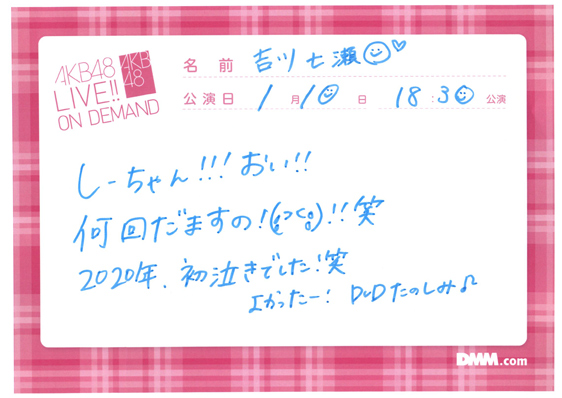 AKB48
LIVE!!
ON DEMAND
AKB
48
名前 吉川七瀬
公演日 1月10日 18:30公演
しーちゃん!!!おい!!
何回だますの!!!笑
2020年、初泣きでした!笑
よかったー! DVDたのしみ♪
DMM.com